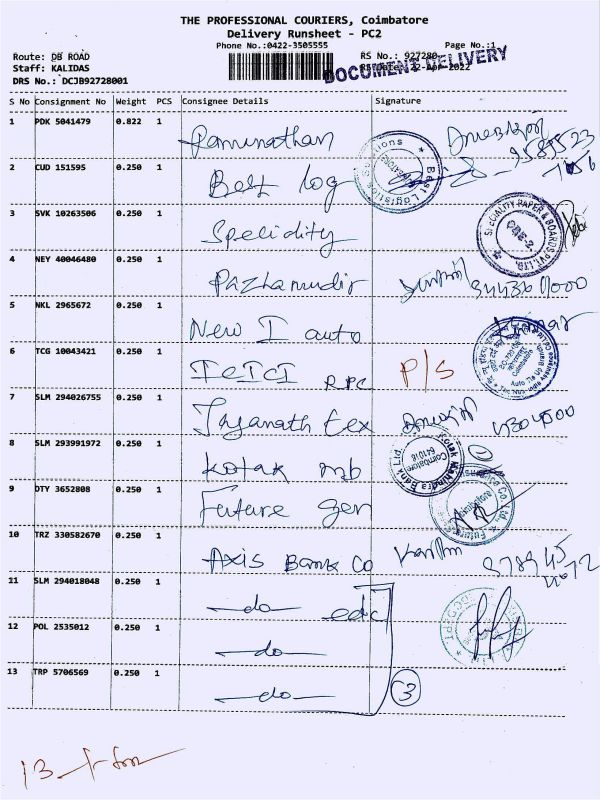 THE PROFESSIONAL COURIERS, Coimbatore
Delivery Runsheet - PC2
Phone No.:0422-3505555 Page No.:1
Route: DB ROAD RS No.: 927280
Staff: KALIDAS RS Date: 22-Apr-2022
DOCUMENT DELIVERY
DRS No.: DCJB92728001
S No Consignment No Weight PCS Consignee Details Signature
1 PDK 5041479 0.822 1 Ramnathan
2 CUD 151595 0.250 1 Best log
Best Logistics Solutions
3 SVK 10263506 0.250 1 Specidity
SPECIALITY PAPER & BOARDS PVT. LTD. CBE-2
4 NEY 40046480 0.250 1 Pazhamudir
5 NKL 2965672 0.250 1 New I auto Kumar
6 TCG 10043421 0.250 1 ICICI RPC P/S
7 SLM 294026755 0.250 1 Jayanath tex
8 SLM 293991972 0.250 1 Kotak mb
Kotak Mahindra Bank Ltd. Coimbatore 641018
9 DTY 3652808 0.250 1 Future gen
10 TRZ 330582670 0.250 1 Axis Bank CO
11 SLM 294018048 0.250 1 do edc
12 POL 2535012 0.250 1 do
13 TRP 5706569 0.250 1 do 3
13